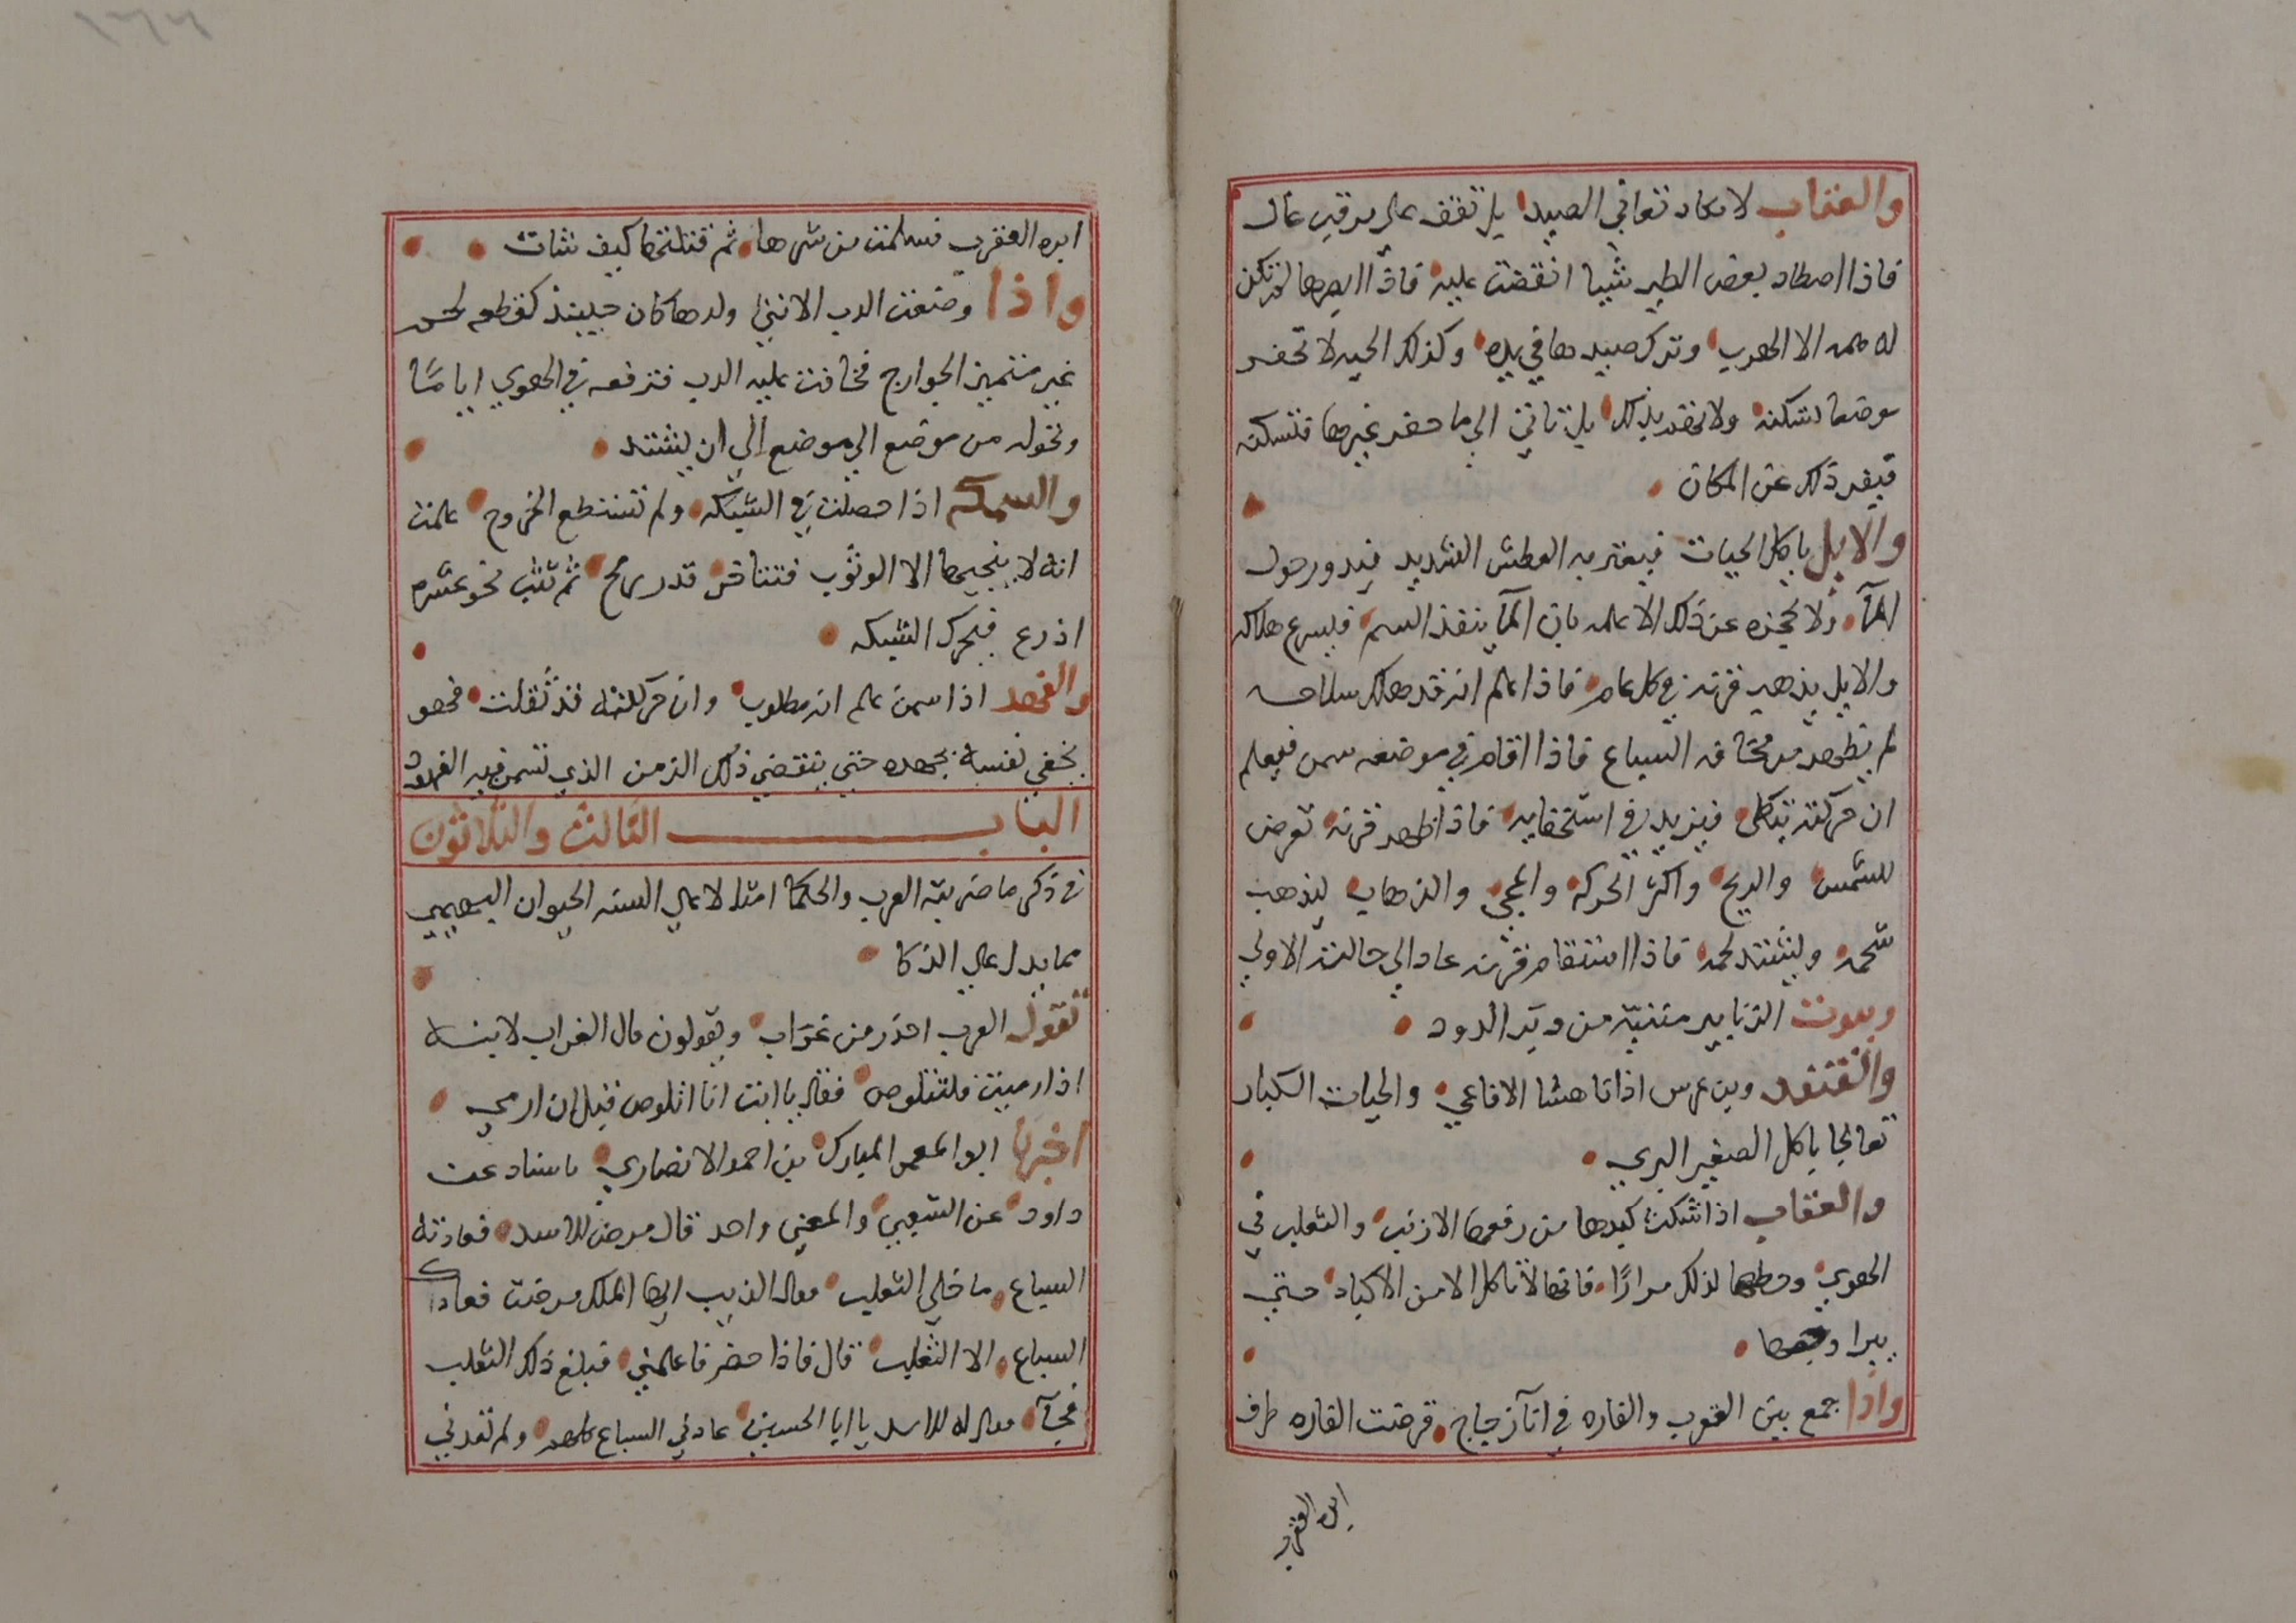 والعقاب لا تكاد تعاني الصيد بل تقف على مرقب عال
فاذا اصطاد بعض الطير شيا انقضت عليه فاذا ابصرها لم تكن
له همه الا الهرب وترك صيدها في يده وكذلك الحيه لا تحفر
موضعا تسكنه ولا تقدر بل تاتي الى ما حفر غيرها فتسكنه
فيفر ذلك عن المكان
والايل ياكل الحيات فيعتريه العطش الشديد فيدور حول
المآ ولا يحجزه عن ذلك الا علمه بان المآ ينفذ السم فيسرع هلاكه
والايل يذهب قرنه في كل عام فاذا علم انه قد هلك سلاحه
لم يظهر من مخافه السباع فاذا اقام في موضعه سمن فيعلم
ان حركته فيزيد في استخفايه فاذا ظهر قرنه تعرض
للشمس والريح واكثر الحركه والمجي والذهاب ليذهب
شحمه ويشتد لحمه فاذا استقام قرنه عاد الي حالته الاولي
وبيوت الزنابير مثنيه من وبر الدود
والقنفد وبن عرس اذا ناهشا الافاعي والحيات الكبار
تعالجا باكل الصغير البري
والعقاب اذا شكت كبدها من رفعها الارنب والثعلب في
الهوي وحطها لذلك مرارًا فانها لا تاكل الا من الاكباد حتي
يبرا وجعها
واذا جمع بين العقرب والفاره في انآ زجاج قرضت الفاره طرف
ابره العقرب
ابره العقرب فسلمت من شرها ثم قتلتها كيف شات
واذا وضعت الدب الانثي ولدها كان حينيذ كقطعه لحم
غير متميز الجوارح فخافت عليه الدب فترفعه في الهوي اياما
وتحوله من موضع الي موضع الي ان يشتد
والسمكه اذا حصلت في الشبكه ولم تستطع الخروج علمت
انه لا ينجيها الا الوثوب فتتاخر قدر رمح ثم تثب نحو عشره
اذرع فيحرك الشبكه
والفهد اذا سمن علم انه مطلوب وان حركته قد ثقلت فهو
يخفي نفسه بجهده حتي ينقضي ذلك الزمن الذي تسمن فيه الفهود
الباب الثالث والثلاثون
في ذكر ما ضربته العرب والحكما امثلا علي السنه الحيوان البهيمي
مما يدل علي الذكا
تقول العرب احذر من غراب ويقولون قال الغراب لابنه
اذا رميت فتلوص فقال يا ابت انا اتلوص قبل ان ارمي
اخبرنا ابو المعمر المبارك بن احمد الانصاري باسناد عن
داود عن الشعبي والمعني واحد قال مرض الاسد فعادته
السباع ما خلي الثعلب فقال الذيب ايها الملك مرضت فعادك
السباع الا الثعلب قال فاذا حضر فاعلمني فبلغ ذلك الثعلب
فجآ فقال له الاسد يا ابا الحسين عادني السباع كلهم ولم تعدني